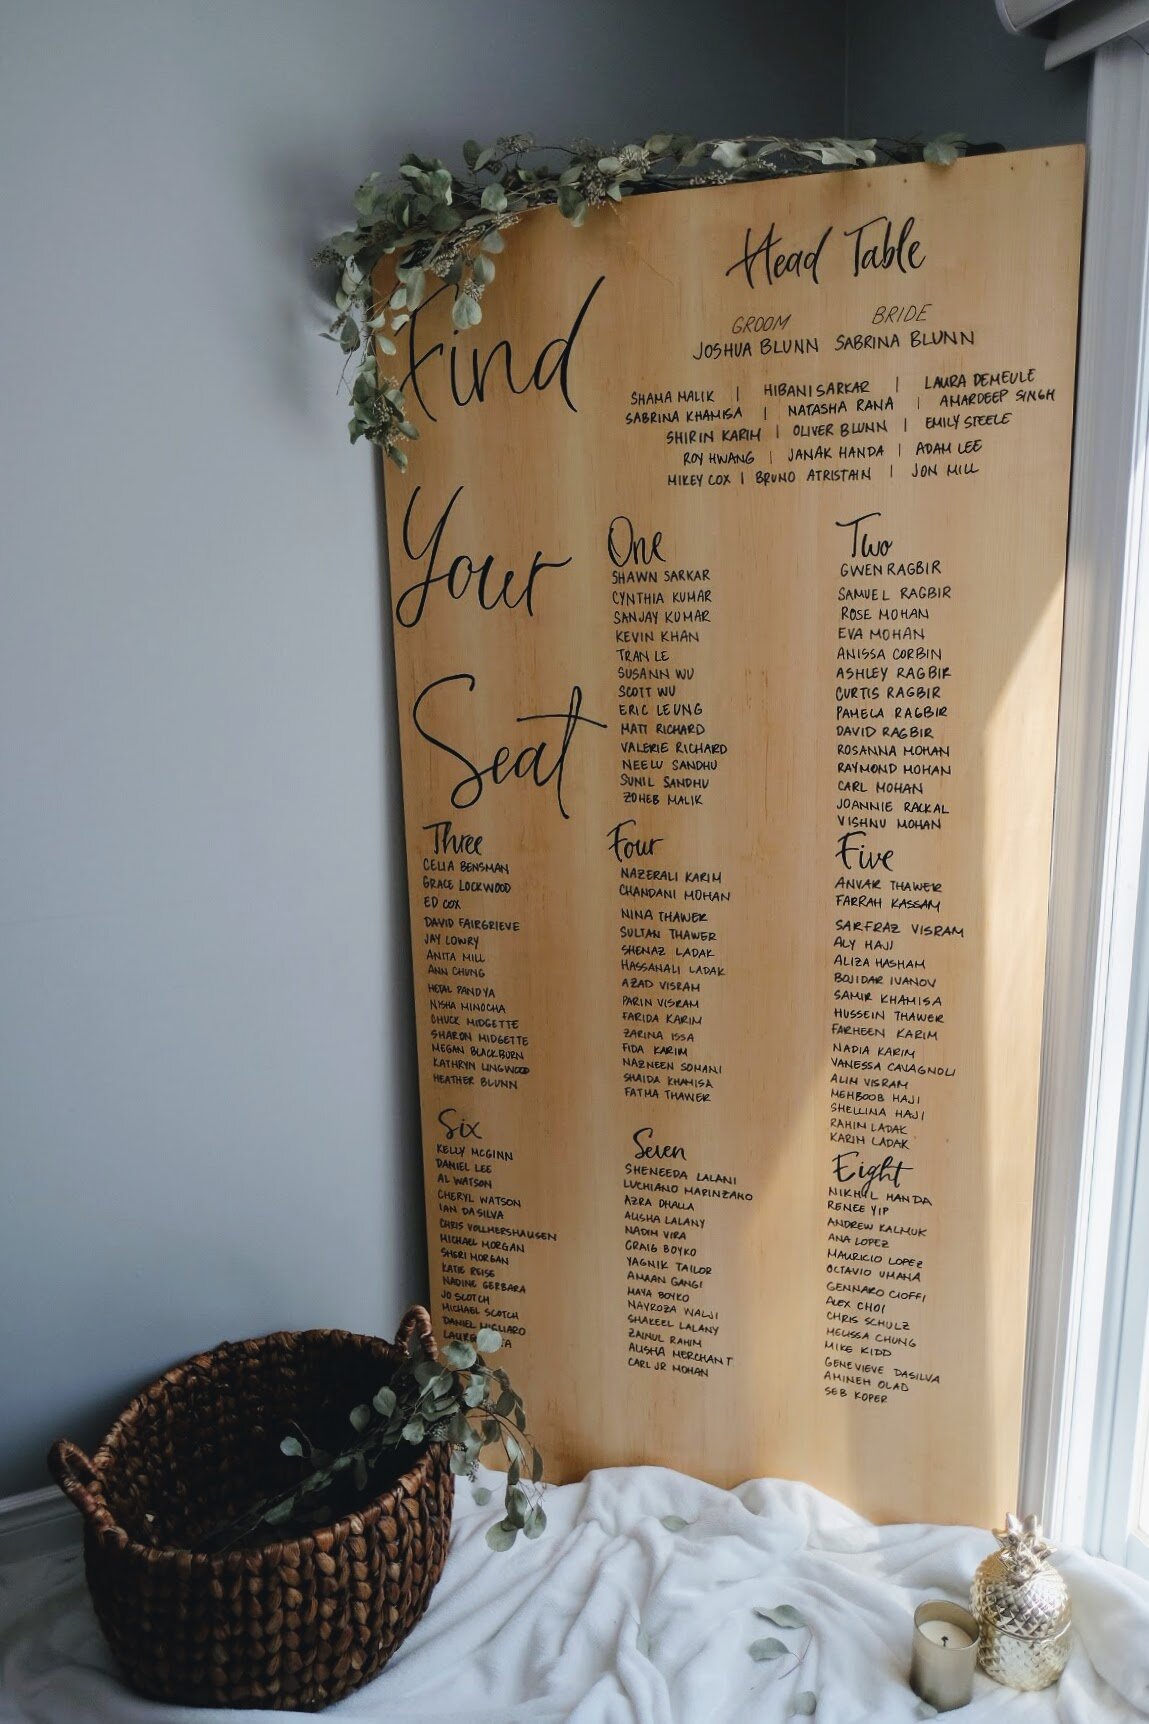 Find
Your
Seat
Head Table
GROOM BRIDE
JOSHUA BLUNN SABRINA BLUNN
SHAMA MALIK | HIBANI SARKAR | LAURA DEMEULE
SABRINA KHAMISA | NATASHA RANA | AMARDEEP SINGH
SHIRIN KARIM | OLIVER BLUNN | EMILY STEELE
ROY HWANG | JANAK HANDA | ADAM LEE
MIKEY COX | BRUNO ATRISTAIN | JON MILL
One
SHAWN SARKAR
CYNTHIA KUMAR
SANJAY KUMAR
KEVIN KHAN
TRAN LE
SUSANN WU
SCOTT WU
ERIC LEUNG
MATT RICHARD
VALERIE RICHARD
NEELU SANDHU
SUNIL SANDHU
ZOHEB MALIK
Two
GWEN RAGBIR
SAMUEL RAGBIR
ROSE MOHAN
EVA MOHAN
ANISSA CORBIN
ASHLEY RAGBIR
CURTIS RAGBIR
PAMELA RAGBIR
DAVID RAGBIR
ROSANNA MOHAN
RAYMOND MOHAN
CARL MOHAN
JOANNIE RACKAL
VISHNU MOHAN
Three
CELIA BENSMAN
GRACE LOCKWOOD
ED COX
DAVID FAIRGRIEVE
JAY LOWRY
ANITA MILL
ANN CHUNG
HETAL PANDYA
NISHA MINOCHA
CHUCK MIDGETTE
SHARON MIDGETTE
MEGAN BLACKBURN
KATHRYN LINGWOOD
HEATHER BLUNN
Four
NAZERALI KARIM
CHANDANI MOHAN
NINA THAWER
SULTAN THAWER
SHENAZ LADAK
HASSANALI LADAK
AZAD VISRAM
PARIN VISRAM
FARIDA KARIM
ZARINA ISSA
FIDA KARIM
NAZNEEN SOMANI
SHAIDA KHAMISA
FATMA THAWER
Five
ANVAR THAWER
FARRAH KASSAM
SARFRAZ VISRAM
ALY HAJI
ALIZA HASHAM
BOJIDAR IVANOV
SAMIR KHAMISA
HUSSEIN THAWER
FARHEEN KARIM
NADIA KARIM
VANESSA CAVAGNOLI
ALIM VISRAM
MEHBOOB HAJI
SHELLINA HAJI
RAHIM LADAK
KARIM LADAK
Six
KELLY MCGINN
DANIEL LEE
AL WATSON
CHERYL WATSON
IAN DASILVA
CHRIS VOLLMERSHAUSEN
MICHAEL MORGAN
SHERI MORGAN
KATIE REISE
NADINE GERBARA
JO SCOTCH
MICHAEL SCOTCH
DANIEL MIGLIARO
Seven
SHENEEDA LALANI
LUCHIANO MARINZANO
AZRA DHALLA
ALISHA LALANY
NADIM VIRA
CRAIG BOYKO
YAGNIK TAILOR
AMAAN GANGI
MAYA BOYKO
NAVROZA WALJI
SHAKEEL LALANY
ZAINUL RAHIM
ALISHA MERCHANT
CARL JR MOHAN
Eight
NIKHIL HANDA
RENEE YIP
ANDREW KALMUK
ANA LOPEZ
MAURICIO LOPEZ
OCTAVIO UMANA
GENNARO CIOFFI
ALEX CHOI
CHRIS SCHULZ
MELISSA CHUNG
MIKE KIDD
GENEVIEVE DASILVA
AMINEH OLAD
SEB KOPER